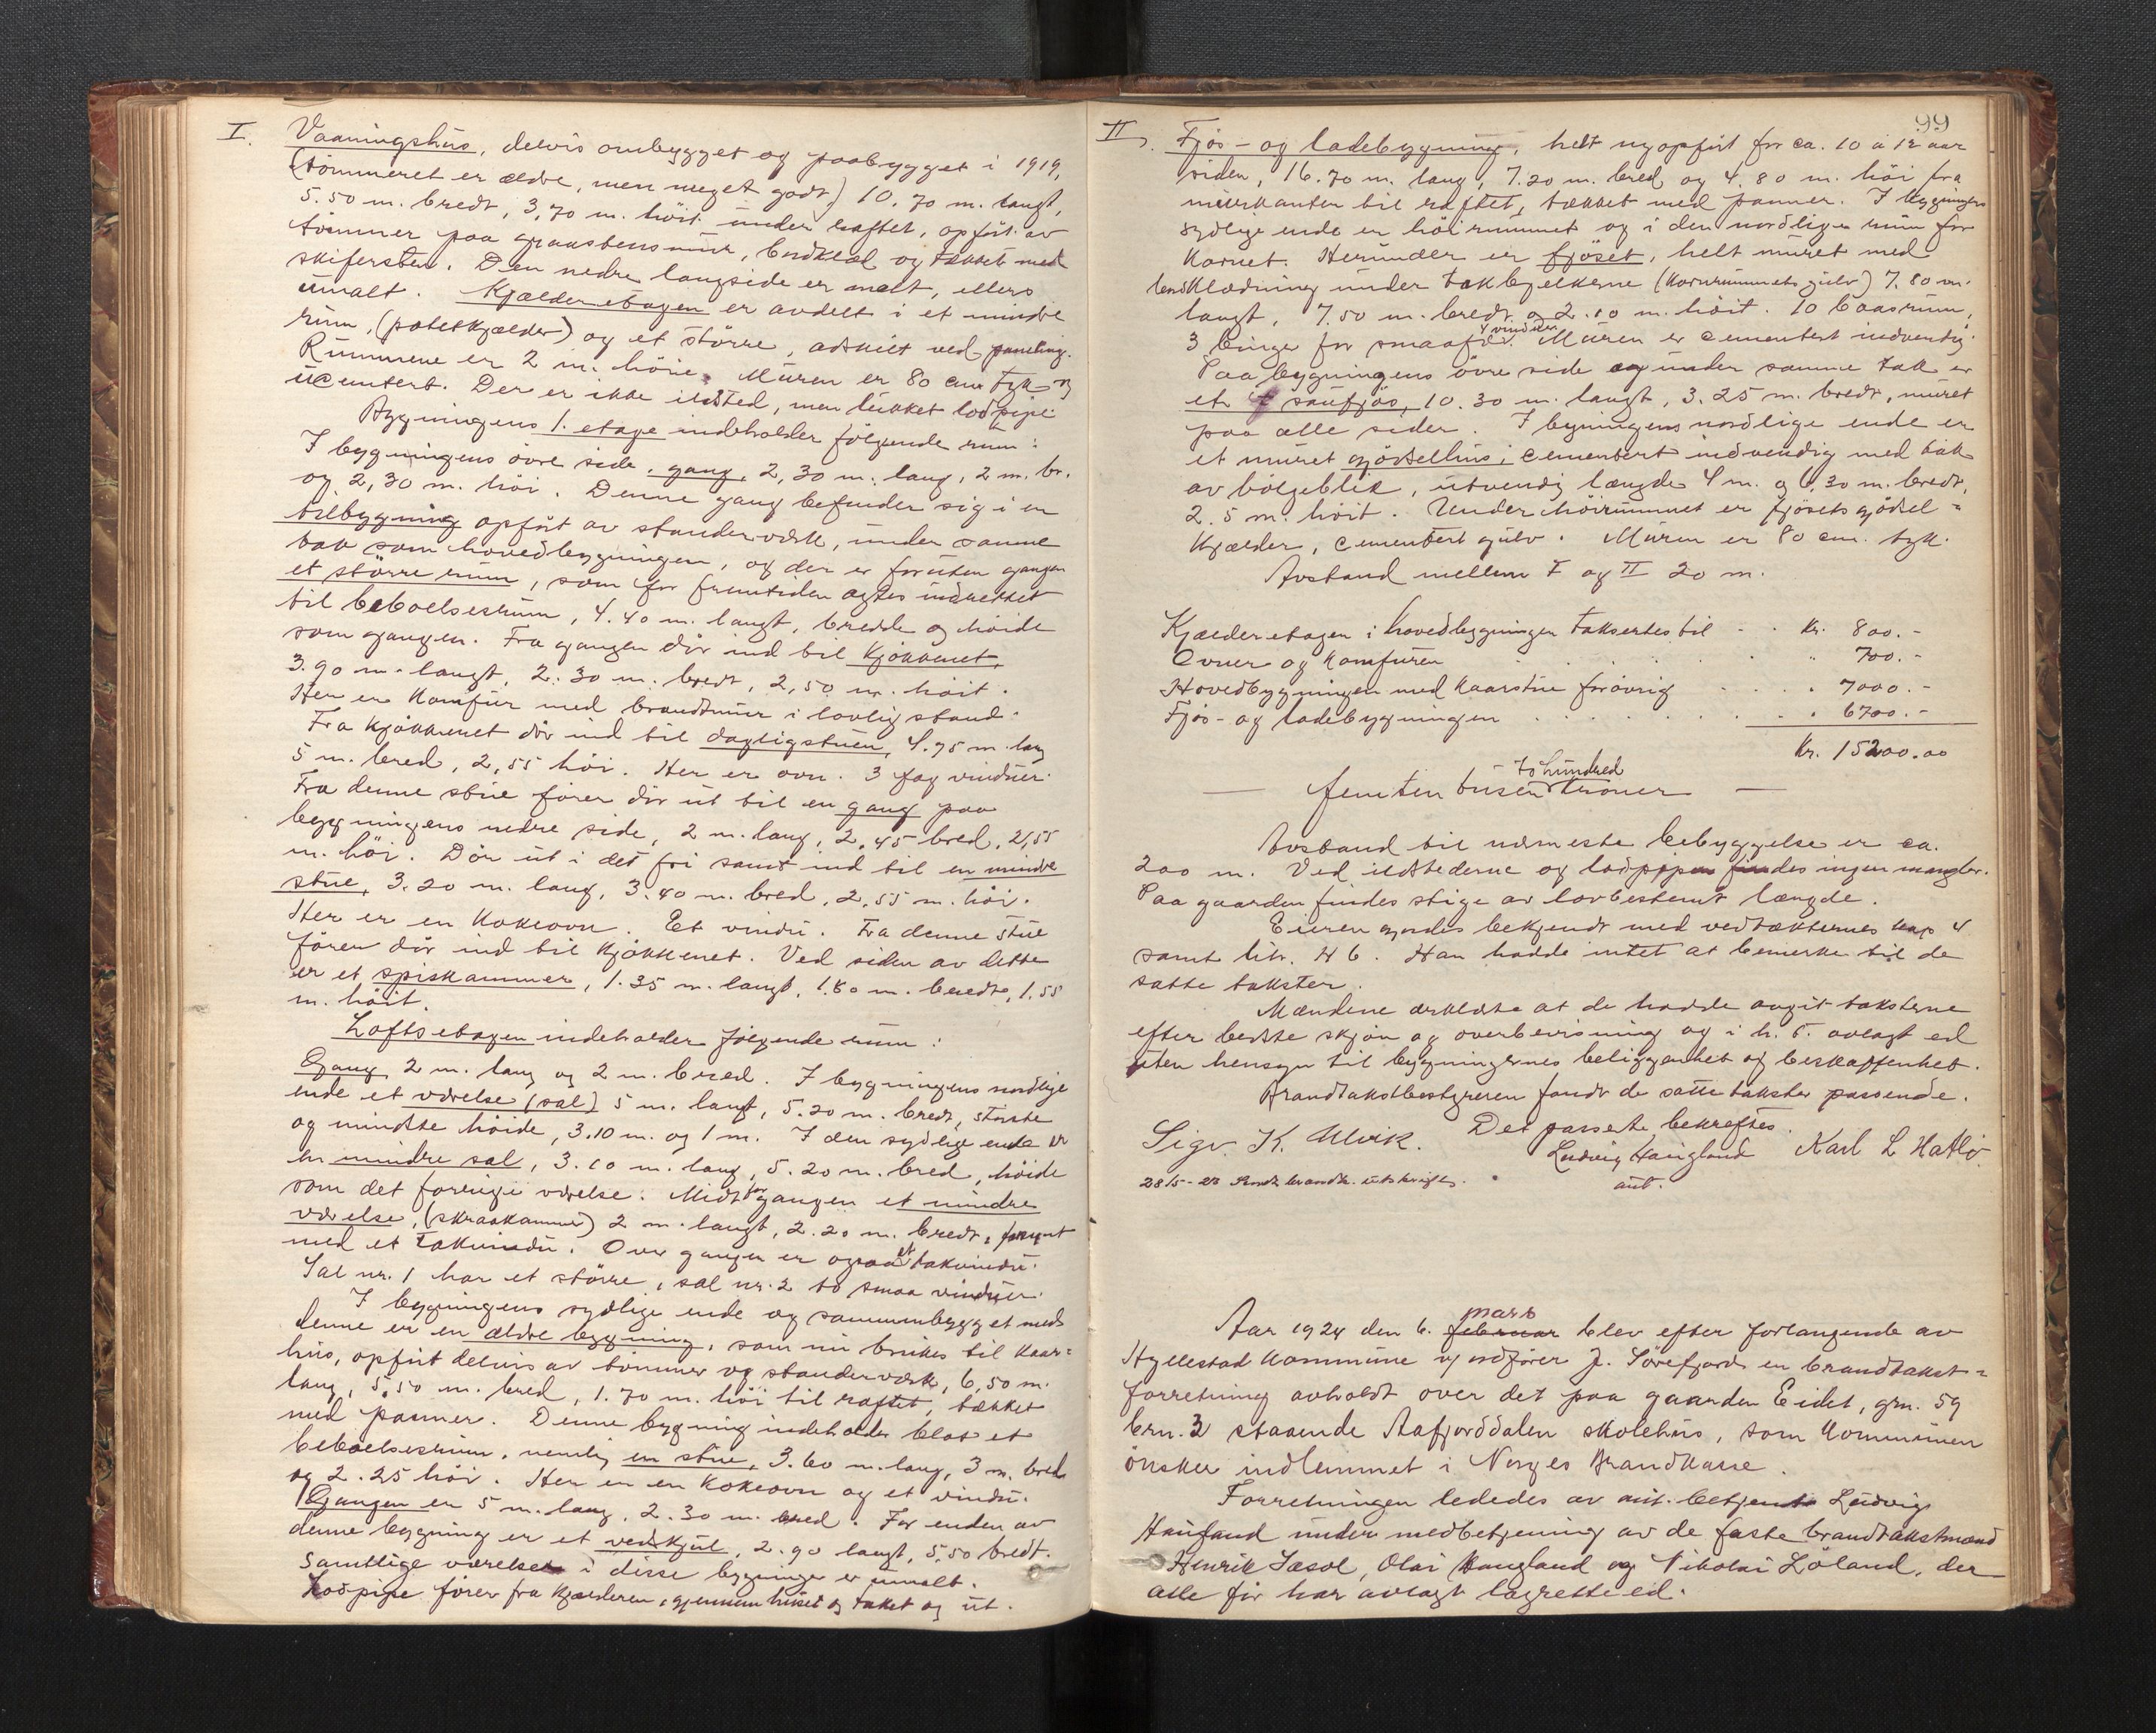 I. Vaaningshus, delvis ombygget og paabygget i 1919,
(tömmeret er ældre, men meget godt) 10.70 m. langt,
5.50 m. bredt, 3,70 m. höit under raftet, opfört av
tömmer paa graastensmur, bordklæd og tækket med
skifersten. Den nedre langside er malt, ellers
umalt. Kjælderetagen er avdelt i et mindre
rum, (potetkjælder) og et större, adskilt ved paneling.
Rummene er 2 m. höie. Muren er 80 cm tyk og
ucementert. Der er ikke ildsted, men lukket lodpipe.
Bygningens 1. etage indeholder fölgende rum:
I bygningens övre side, gang, 2,30 m. lang, 2 m. br.
og 2,30 m. höi. Denne gang befinder sig i en
tilbygning opfört av standerværk, under samme
tak som hovedbygningen, og der er foruten gangen
et större rum, som for fremtiden agtes indrettet
til beboelsesrum, 4.40 m. langt, bredde og höide
som gangen. Fra gangen dör ind til kjökkenet,
3.90 m. langt, 2.30 m. bredt, 2,50 m. höit.
Her er komfur med brandmur i lovlig stand.
Fra kjökkenet dör ind til dagligstuen, 4.75 m. lang
5 m. bred, 2,55 höi. Her er ovn. 3 fag vinduer.
Fra denne stue förer dör ut til en gang paa
bygningens nedre side, 2 m. lang, 2,45 bred, 2,55
m. höi. Dör ut i det fri samt ind til en mindre
stue, 3.20 m. lang, 3.40 m. bred, 2.55 m. höi.
Her er en kokeovn. Et vindu. Fra denne stue
förer dör ind til kjökkenet. Ved siden av dette
er et spiskammer, 1.35 m. langt, 1.80 m. bredt, 1.55
m. höit.
Loftsetagen indeholder fölgende rum:
Gang 2 m. lang og 2 m. bred. I bygningens nordlige
ende et værelse (sal) 5 m. langt, 5.20 m. bredt, störste
og mindste höide, 3.10 m. og 1 m. I den sydlige ende er
en mindre sal, 3.10 m. lang, 5.20 m. bred, höide
som det forrige værelse. Midt for gangen et mindre
værelse, (skraakammer) 2 m. langt, 2.20 m. bredt, forsynt
med et takvindu. Over gangen er ogsaa et takvindu.
Sal nr. 1 har et större, sal nr. 2 to smaa vinduer.
I bygningens sydlige ende og sammenbygget med
denne er en ældre bygning, som nu brukes til kaar-
hus, opfört delvis av tömmer og standerværk, 6,50 m.
lang, 5,50 m. bred, 1.70 m. höi til raftet, tækket
med panner. Denne bygning indeholder blot et
beboelsesrum, nemlig en stue, 3.60 m. lang, 3 m. bred
og 2.25 höi. Her er en kokeovn og et vindu.
Gangen er 5 m. lang, 2.30 m. bred. For enden av
denne bygning er et vedskjul, 2.90 langt, 5,50 bredt.
Samtlige værelser i disse bygninger er umalt.
Lodpipe förer fra kjælderen, gjennem huset og taket og ut.
99
II. Fjös- og ladebygning, helt nyopfört for ca. 10 à 12 aar
siden, 16.70 m. lang, 7.20 m. bred og 4.80 m. höi fra
murkanten til raftet, tækket med panner. I bygningens
sydlige ende er höirummet og i den nordlige rum for
kornet. Herunder er fjöset, helt muret med
bordklædning under takbjelkerne (kornrummets gulv) 7.80 m.
langt, 7.50 m. bredt og 2.10 m. höit. 10 baasrum,
3 binger for smaafæ. 4 vinduer. Muren er cementert indvendig.
Paa bygningens övre side og under samme tak er
et saufjös, 10.30 m. langt, 3.25 m. bredt, muret
paa alle sider. I bygningens nordlige ende er
et muret gjödselhus, cementert indvendig med tak
av bölgeblik, utvendig længde 4 m. og 6,30 m. bredt,
2.5 m. höit. Under höirummet er fjösets gjödsel-
kjælder, cementert gulv. Muren er 80 cm. tyk.
Avstand mellem I og II 20 m.
Kjælderetagen i hovedbygningen taksertes til - . Kr. 800.-
Ovner og komfuren . . . . . " 700.-
Hovedbygningen med kaarstue forövrig . . . . 7000.-
Fjös- og ladebygningen . . . . . . . 6700.-
Kr. 15200.00
— femten tusen to hundred kroner —
Avstand til nærmeste bebyggelse er ca.
200 m. Ved ildstederne og lodpipen findes ingen mangler.
Paa gaarden findes stige av lovbestemt længde.
Eieren gjordes bekjendt med vedtækternes kap 4
samt litr. H 6. Han hadde intet at bemerke til de
satte takster.
Mændene erklærte at de hadde avgit taksterne
efter bedste skjön og overbevisning og i h. t. avlagt ed
uten hensyn til bygningernes beliggenhet og beskaffenhet.
Brandtakstbestyreren fandt de satte takster passende.
Det passerte bekræftes.
Sigv. K. Ulvik. Ludvig Haugland Karl L Hatlö.
aut.
28/5-23 Sendt brandk. utskrift.
Aar 1924 den 6. februar mars blev efter forlangende av
Hyllestad kommune v/ ordförer J. Sörefjord en brandtakst-
forretning avholdt over det paa gaarden Eidet, grn. 59
brn. 3 staaende Aafjorddalen skolehus, som kommunen
önsker indlemmet i Norges Brandkasse.
Forretningen lededes av aut. betjent Ludvig
Haugland under medbetjening av de faste brandtakstmænd
Henrik Sæsol, Olai Haugland og Nikolai Löland, der
alle för har avlagt lagretteed.